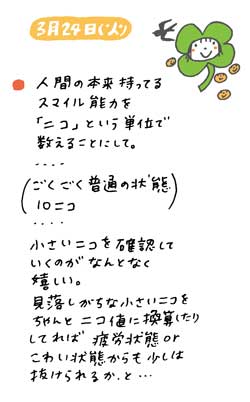 3月24日(火)
人間の本来持ってる
スマイル能力を
「ニコ」という単位で
数えることにして。
----
(ごくごく普通の状態
10ニコ)
....
小さいニコを確認して
いくのがなんとなく
嬉しい。
見落しがちな小さいニコを
ちゃんとニコ値に換算したり
してれば疲労状態or
こわい状態からも少しは
抜けられるか、と…